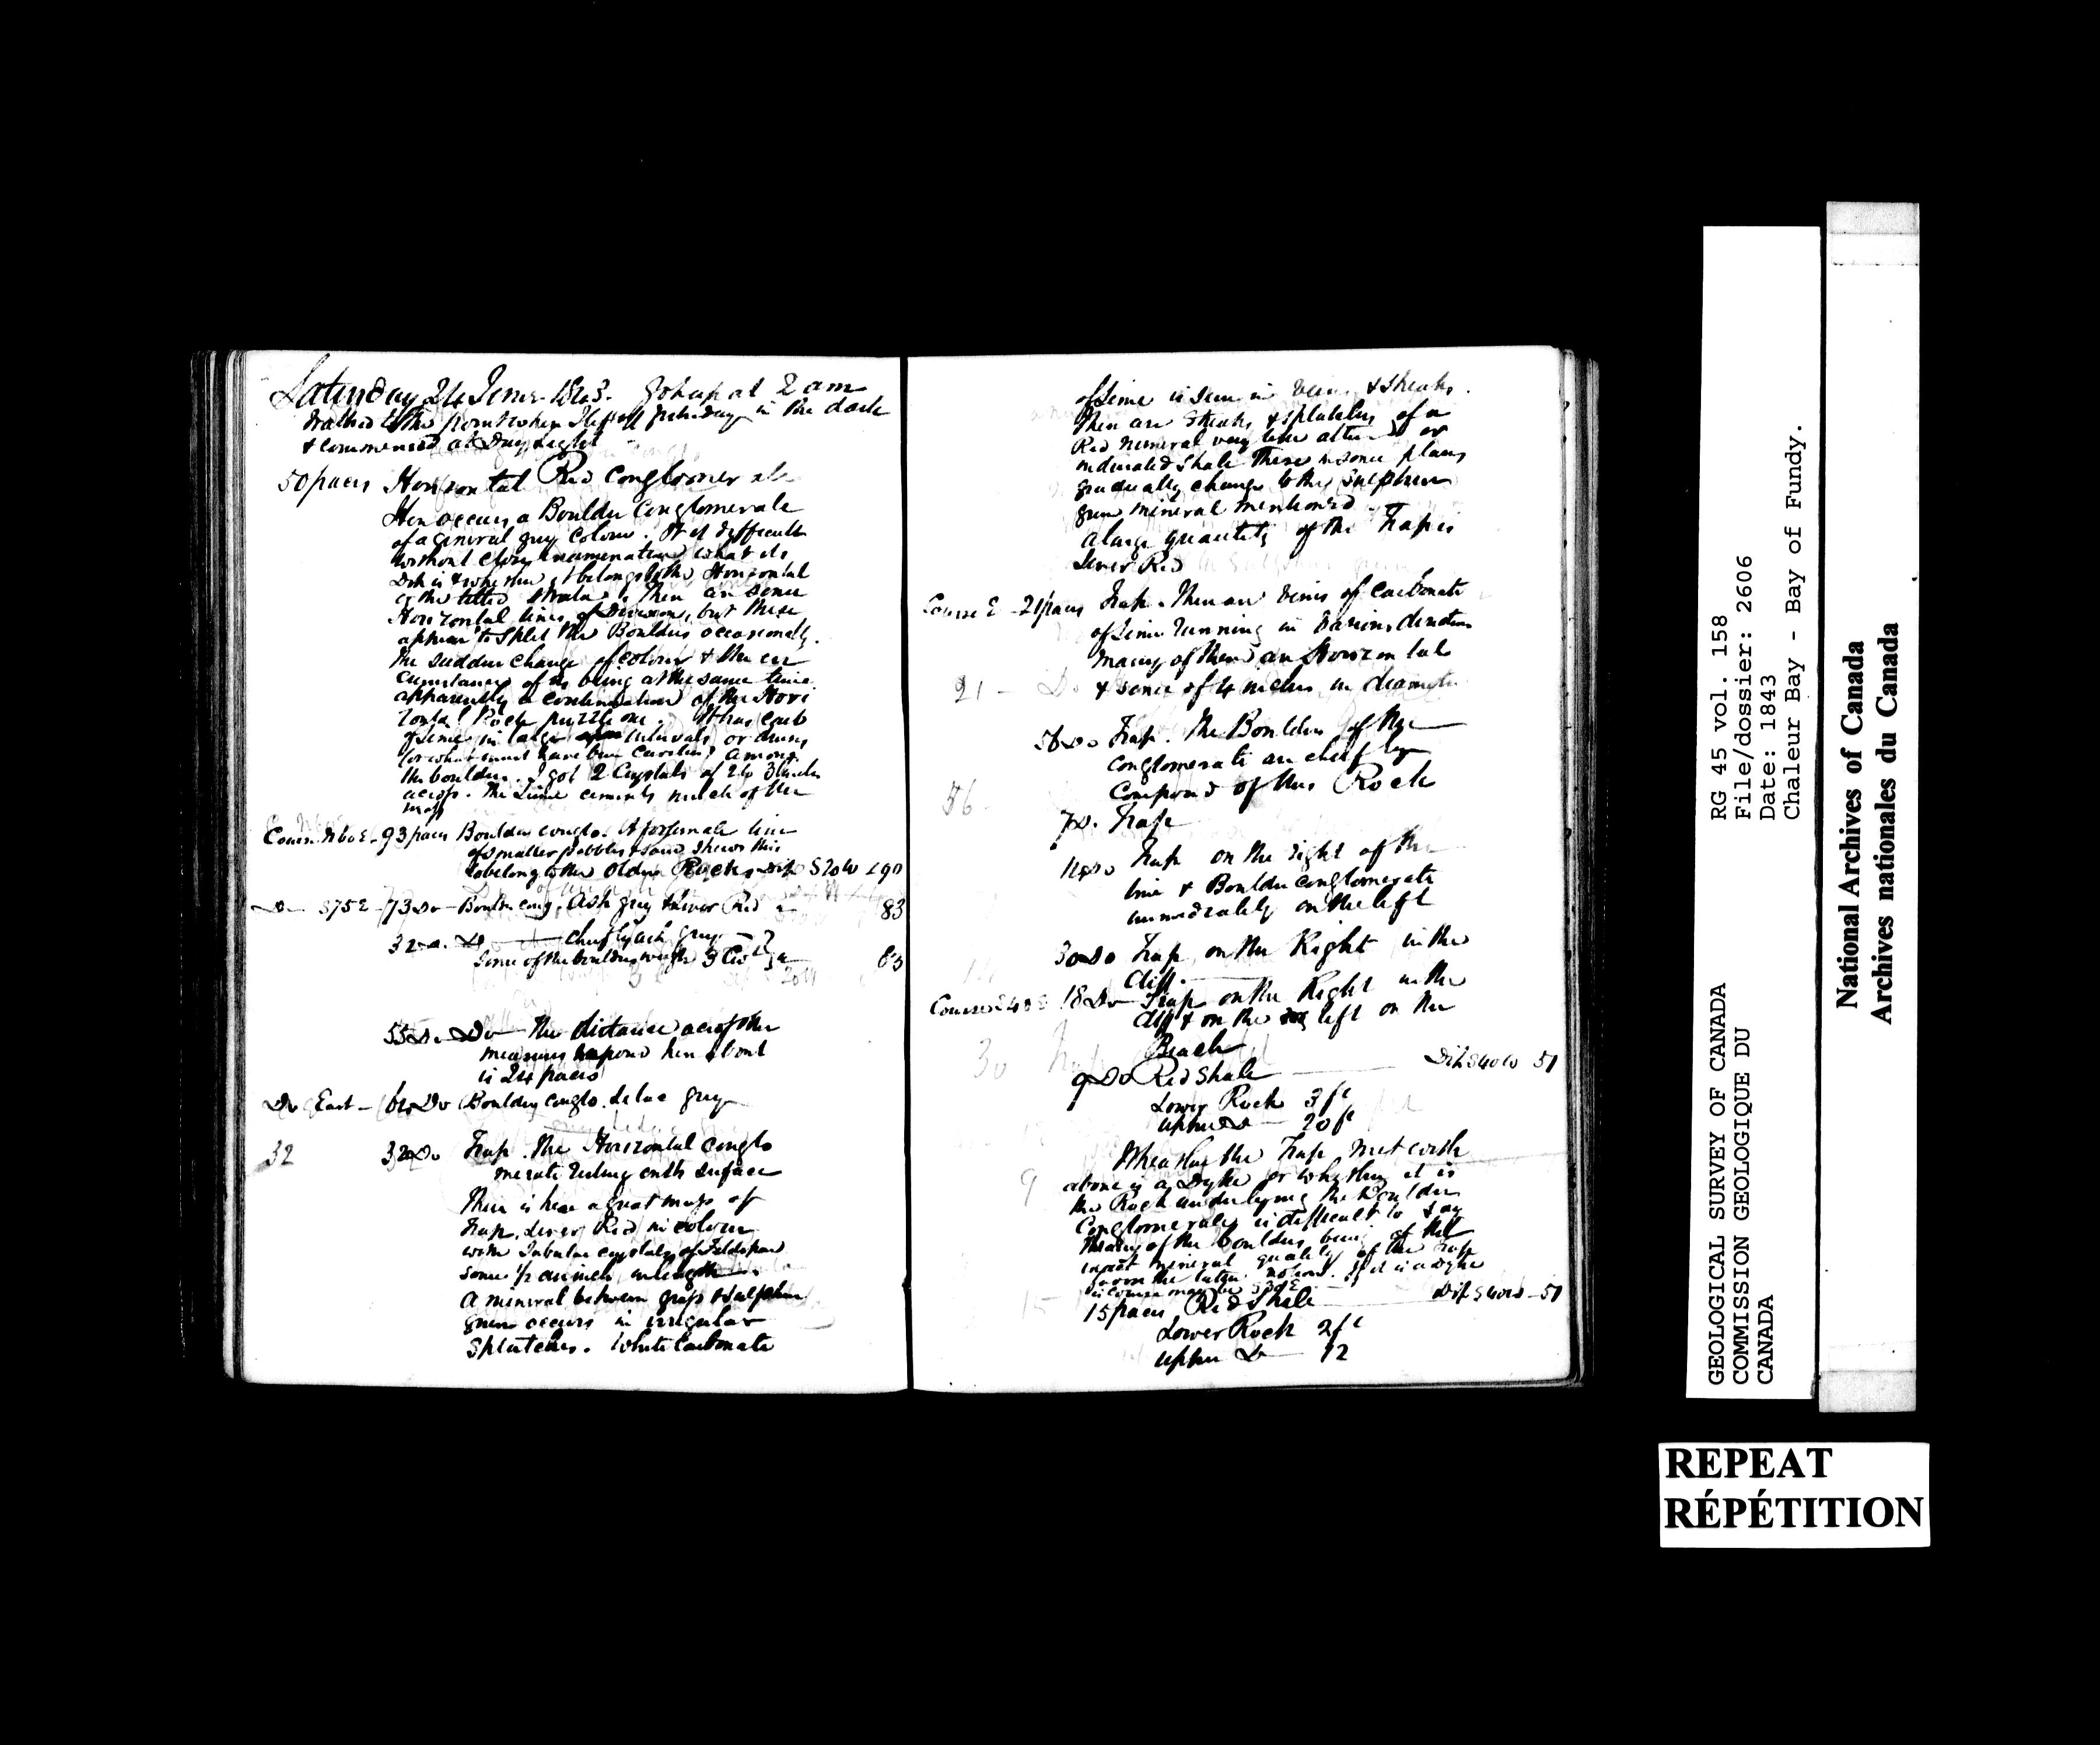 Saturday 24 June 1843. Got up at 2 am
Walked to the point where I left off yesterday in the dark
& commenced at Day Light
50 paces Horizontal Red Conglomerate
Here occurs a Boulder Conglomerate
of a general grey colour. It is difficult
without close examination what its
Dip is & whether it belongs to the Horizontal
or the tilted strata. There are some
Horizontal lines of Division, but these
appear to split the Boulders occasionally.
The sudden change of colour & the cir
cumstance of its being at the same time
apparently a continuation of the Hori
zontal Rock puzzle one. It has carb
of Lime in large intervals or druses
(or what must have been cavities) among
the boulders. I got 2 Crystals of 2 to 3 Inches
across. The Lime cements much of the
mass
Course N60E - 93 paces Boulder conglo. A fortunate line
of smaller pebbles & sand shews this
to belong to the Older Rocks Dip S20W <90
Do S75E - 73 Do - Boulder cong. Ash grey & Liver Red 83
32 Do Do chiefly ash grey
Some of the boulders weigh 3 Cwt 63
55 Do Do - The distance across the
measures here about
is 24 paces
Do East - 60 Do Boulder conglo. de lue grey
32 32 Do Trap. The Horizontal conglo
merate resting on its surface
There is here a great mass of
Trap, Liver Red in colour
with Tabular crystals of Feldspar
some 1/2 an inch in length
A mineral between grass & sulphur
green occurs in irregular
Splutches. White Carbonate
of Lime is seen in veins & streaks.
There are streaks & splutches of a
Red mineral very like altered or
indurated shale. These in some places
gradually change to the Sulphur
green mineral mentioned.
A large quantity of the Trap is
Liver Red
Course E - 21 paces Trap. There are veins of Carbonate
of Lime running in various directions
many of them are Horizontal
21 - Do & some of 4 inches in diameter
56 Do Trap. The Boulders of the
conglomerate are chiefly
composed of this Rock
56
7 Do. Trap
14 Do Trap on the right of the
line & Boulder conglomerate
immediately on the left
30 Do Trap on the Right in the
Cliff.
Course S40E 18 Do - Trap on the Right in the
cliff & on the left on the
Beach
30
9 Do Red Shale Dip S40W 51
Lower Rock 3 ft
Upper Do 20 ft
Whether the Trap met with
9 above is a Dyke or whether it is
the Rock underlying the Boulder
Conglomerate is difficult to say
Many of the boulders being of the
exact mineral quality of the Trap
favors the latter notion. If it is a Dyke
its course may be S30E
15 15 paces Red Shale Dip S40W - 51
Lower Rock 2 ft
Upper Do - 12
RG 45 vol. 158
File/dossier: 2606
Date: 1843
Chaleur Bay - Bay of Fundy.
GEOLOGICAL SURVEY OF CANADA
COMMISSION GEOLOGIQUE DU
CANADA
National Archives of Canada
Archives nationales du Canada
REPEAT
RÉPÉTITION